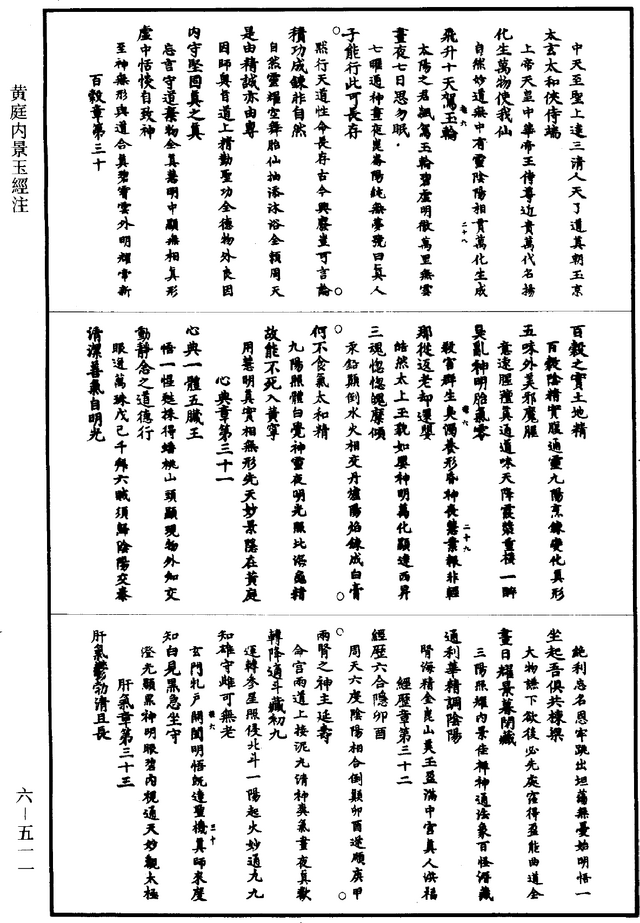 黄庭内景玉經注
中天至聖上達三清人天了道真朝玉京
太玄太和俠侍端
上帝天皇中華帝王侍尊近貴萬代名揚
化生萬物使我仙
自然妙道無中有靈陰陽相貫萬化生成
飛升十天駕玉輪
太陽之君諷駕玉輪碧虛明徹萬里無雲
晝夜七日思勿眠
七曜通神晝夜崑崙陽純無夢號曰真人
子能行此可長存
默行天道性命長存古今興廢豈可言論
積功成鍊非自然
自然靈耀空舞胎仙抽添沐浴全賴周天
是由精誠亦由專
因師與旨道上精勤聖功全德物外良因
内守堅固真之真
忘言守道棄物全真慧明中顯無相真形
虛中恬惔自致神
至神無形與道合真碧霄雲外明耀常新
百穀章第三十
百穀之實土地精
百穀陰精實腹通靈九陽烹鍊變化真形
五味外美邪魔腥
意遠腥羶真通道味天降霞漿重樓一醉
臭亂神明胎氣零
穀害群生臭濁養形昏神喪慧業報非輕
那從返老却還嬰
皓然太上玉貌如嬰神明萬化顯達西昇
三魂惚惚魄糜傾
汞鉛顛倒水火相交丹爐陽焰鍊成白膏
何不食氣太和精
九陽照體白覺神靈夜明光照北海龜精
故能不死入黃寧
用慧明真實相無形先天妙景隱在黃庭
心典章第三十一
心典一體五臟王
悟一怪甦採得蟠桃山頭顯現物外知交
動靜念之道德行
眼迸萬珠戊己千解六賊須歸陰陽交泰
清潔善氣自明光
絕利忘名恩牢跳出坦蕩無憂始明悟一
坐起吾俱共棟樑
大物謙下欲後必先處窪得盈能曲道全
晝日曜景暮閉藏
三陽照耀内景佳禪神通法象百怪潛藏
通利華精調陰陽
腎海精金崑山美玉盈滿中宮真人洪福
經歷章第三十二
經歷六合隱卯酉
周天六度陰陽相合倒顛卯酉逆順庚甲
兩腎之神主延壽
命宮兩道上接泥丸清神爽氣晝夜真歡
轉降適斗藏初九
運轉參星照侵北斗一陽起火妙通九九
知雄守雌可無老
玄門牝戶開闔明悟既達聖機真師來度
知白見黑急坐守
澄光顯黑神明眼碧内視通天妙觀太極
肝氣章第三十三
肝氣鬱勃清且長
六－五一一